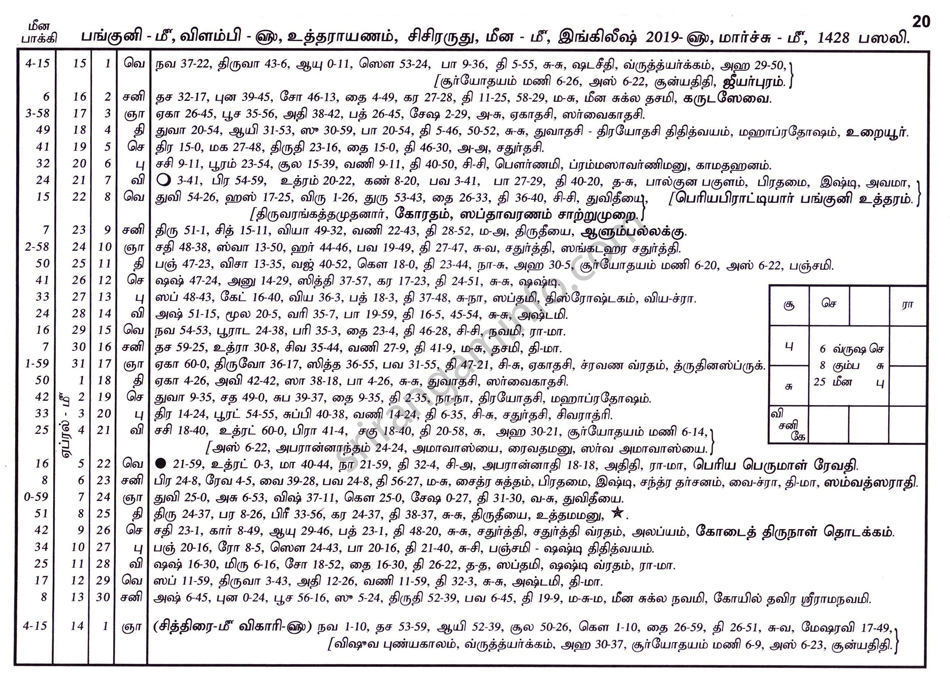 20
மீன பாக்கி
பங்குனி - மீ, விளம்பி - ௵, உத்தராயணம், சிசிரருது, மீன - மீ, இங்கிலீஷ் 2019-௵, மார்ச்சு - மீ, 1428 பஸலி.
4-15 15 1 வெ நவ 37-22, திருவா 43-6, ஆயு 0-11, ஸௌ 53-24, பா 9-36, தி 5-55, சு-சு, ஷடசீதி, வ்ருத்யர்க்கம், அஹ 29-50,
[சூர்யோதயம் மணி 6-26, அஸ் 6-22, சூன்யதிதி, ஜீயர்புரம்.
6 16 2 சனி தச 32-17, புன 39-45, சோ 46-13, தை 4-49, கர 27-28, தி 11-25, 58-29, ம-சு, மீன சுக்ல தசமி, கருடஸேவை.
3-58 17 3 ஞா ஏகா 26-45, பூச 35-56, அதி 38-42, பத் 26-45, சேஷ 2-29, அ-சு, ஏகாதசி, ஸர்வைகாதசி.
49 18 4 தி துவா 20-54, ஆயி 31-53, ஸு 30-59, பா 20-54, தி 5-46, 50-52, சு-சு, துவாதசி - திரயோதசி திதித்வயம், மஹாப்ரதோஷம், உறையூர்.
41 19 5 செ திர 15-0, மக 27-48, திருதி 23-16, தை 15-0, தி 46-30, அ-அ, சதுர்தசி.
32 20 6 பு சசி 9-11, பூரம் 23-54, சூல 15-39, வணி 9-11, தி 40-50, சி-சி, பௌர்ணமி, ப்ரம்மஸாவர்ணிமனு, காமதஹனம்.
24 21 7 வி 3-41, பிர 54-59, உத்ரம் 20-22, கண் 8-20, பவ 3-41, பா 27-29, தி 40-20, த-சு, பால்குன பகுளம், பிரதமை, இஷ்டி, அவமா,
15 22 8 வெ துவி 54-26, ஹஸ் 17-25, விரு 1-26, துரு 53-43, தை 26-33, தி 36-40, சி-சி, துவிதீயை, [பெரியபிராட்டியார் பங்குனி உத்தரம்.
[திருவரங்கத்தமுதனார், கோரதம், ஸப்தாவரணம் சாற்றுமுறை.
7 23 9 சனி திரு 51-1, சித் 15-11, வியா 49-32, வணி 22-43, தி 28-52, ம-அ, திருதீயை, ஆளும்பல்லக்கு.
2-58 24 10 ஞா சதி 48-38, ஸ்வா 13-50, ஹர் 44-46, பவ 19-49, தி 27-47, சு-வ, சதுர்த்தி, ஸங்கடஹர சதுர்த்தி.
50 25 11 தி பஞ் 47-23, விசா 13-35, வஜ் 40-52, கௌ 18-0, தி 23-44, நா-சு, அஹ 30-5, சூர்யோதயம் மணி 6-20, அஸ் 6-22, பஞ்சமி.
41 26 12 செ ஷஷ் 47-24, அனு 14-29, ஸித்தி 37-57, கர 17-23, தி 24-51, சு-சு, ஷஷ்டி.
33 27 13 பு ஸப் 48-43, கேட் 16-40, விய 36-3, பத் 18-3, தி 37-48, சு-நா, ஸப்தமி, திஸ்ரோஷ்டகம், விய-ச்ரா.
24 28 14 வி அஷ் 51-15, மூல 20-5, வரி 35-7, பா 19-59, தி 16-5, 45-54, சு-சு, அஷ்டமி.
16 29 15 வெ நவ 54-53, பூராட 24-38, பரி 35-3, தை 23-4, தி 46-28, சி-சி, நவமி, ரா-மா.
7 30 16 சனி தச 59-25, உத்ரா 30-8, சிவ 35-44, வணி 27-9, தி 41-9, ம-சு, தசமி, தி-மா.
1-59 31 17 ஞா ஏகா 60-0, திருவோ 36-17, ஸித்த 36-55, பவ 31-55, தி 47-21, சி-சு, ஏகாதசி, ச்ரவண வ்ரதம், த்ருதினஸ்ப்ருக்.
ஏப்ரல் - மீ
50 1 18 தி ஏகா 4-26, அவி 42-42, ஸா 38-18, பா 4-26, சு-சு, துவாதசி, ஸர்வைகாதசி.
42 2 19 செ துவா 9-35, சத 49-0, சுப 39-37, தை 9-35, தி 2-35, நா-நா, திரயோதசி, மஹாப்ரதோஷம்.
33 3 20 பு திர 14-24, பூரட் 54-55, சுப்பி 40-38, வணி 14-24, தி 6-35, சி-சு, சதுர்தசி, சிவராத்ரி.
25 4 21 வி சசி 18-40, உத்ரட் 60-0, பிரா 41-4, சகு 18-40, தி 20-58, சு, அஹ 30-21, சூர்யோதயம் மணி 6-14,
[அஸ் 6-22, அபரான்னாந்தம் 24-24, அமாவாஸ்யை, ரைவதமனு, ஸர்வ அமாவாஸ்யை.
16 5 22 வெ 21-59, உத்ரட் 0-3, மா 40-44, நா 21-59, தி 32-4, சி-அ, அபரான்னாதி 18-18, அதிதி, ரா-மா, பெரிய பெருமாள் ரேவதி.
8 6 23 சனி பிர 24-8, ரேவ 4-5, வை 39-28, பவ 24-8, தி 56-27, ம-சு, சைத்ர சுத்தம், பிரதமை, இஷ்டி, சந்த்ர தர்சனம், வை-ச்ரா, தி-மா, ஸம்வத்ஸராதி.
0-59 7 24 ஞா துவி 25-0, அசு 6-53, விஷ் 37-11, கௌ 25-0, சேஷ 0-27, தி 31-30, வ-சு, துவிதீயை.
51 8 25 தி திரு 24-37, பர 8-26, பிரீ 33-56, கர 24-37, தி 38-37, சு-சு, திருதீயை, உத்தமமனு, ★.
42 9 26 செ சதி 23-1, கார் 8-49, ஆயு 29-46, பத் 23-1, தி 48-20, சு-சு, சதுர்த்தி, சதுர்த்தி வ்ரதம், அலப்யம், கோடைத் திருநாள் தொடக்கம்.
34 10 27 பு பஞ் 20-16, ரோ 8-5, ஸௌ 24-43, பா 20-16, தி 21-40, சு-சி, பஞ்சமி - ஷஷ்டி திதித்வயம்.
25 11 28 வி ஷஷ் 16-30, மிரு 6-16, சோ 18-52, தை 16-30, தி 26-22, த-த, ஸப்தமி, ஷஷ்டி வ்ரதம், ரா-மா.
17 12 29 வெ ஸப் 11-59, திருவா 3-43, அதி 12-26, வணி 11-59, தி 32-3, சு-சு, அஷ்டமி, தி-மா.
8 13 30 சனி அஷ் 6-45, புன 0-24, பூச 56-16, ஸு 5-24, திருதி 52-39, பவ 6-45, தி 19-9, ம-சு-ம, மீன சுக்ல நவமி, கோயில் தவிர ஸ்ரீராமநவமி.
4-15 14 1 ஞா (சித்திரை-மீ விகாரி-௵) நவ 1-10, தச 53-59, ஆயி 52-39, சூல 50-26, கௌ 1-10, தை 26-59, தி 26-51, சு-வ, மேஷரவி 17-49,
[விஷுவ புண்யகாலம், வ்ருத்யர்க்கம், அஹ 30-37, சூர்யோதயம் மணி 6-9, அஸ் 6-23, சூன்யதிதி.
சூ செ ரா
பு
6 வ்ருஷ செ
8 கும்ப சு
25 மீன பு
சு
வி
சனி
கே
srirangaminfo.com